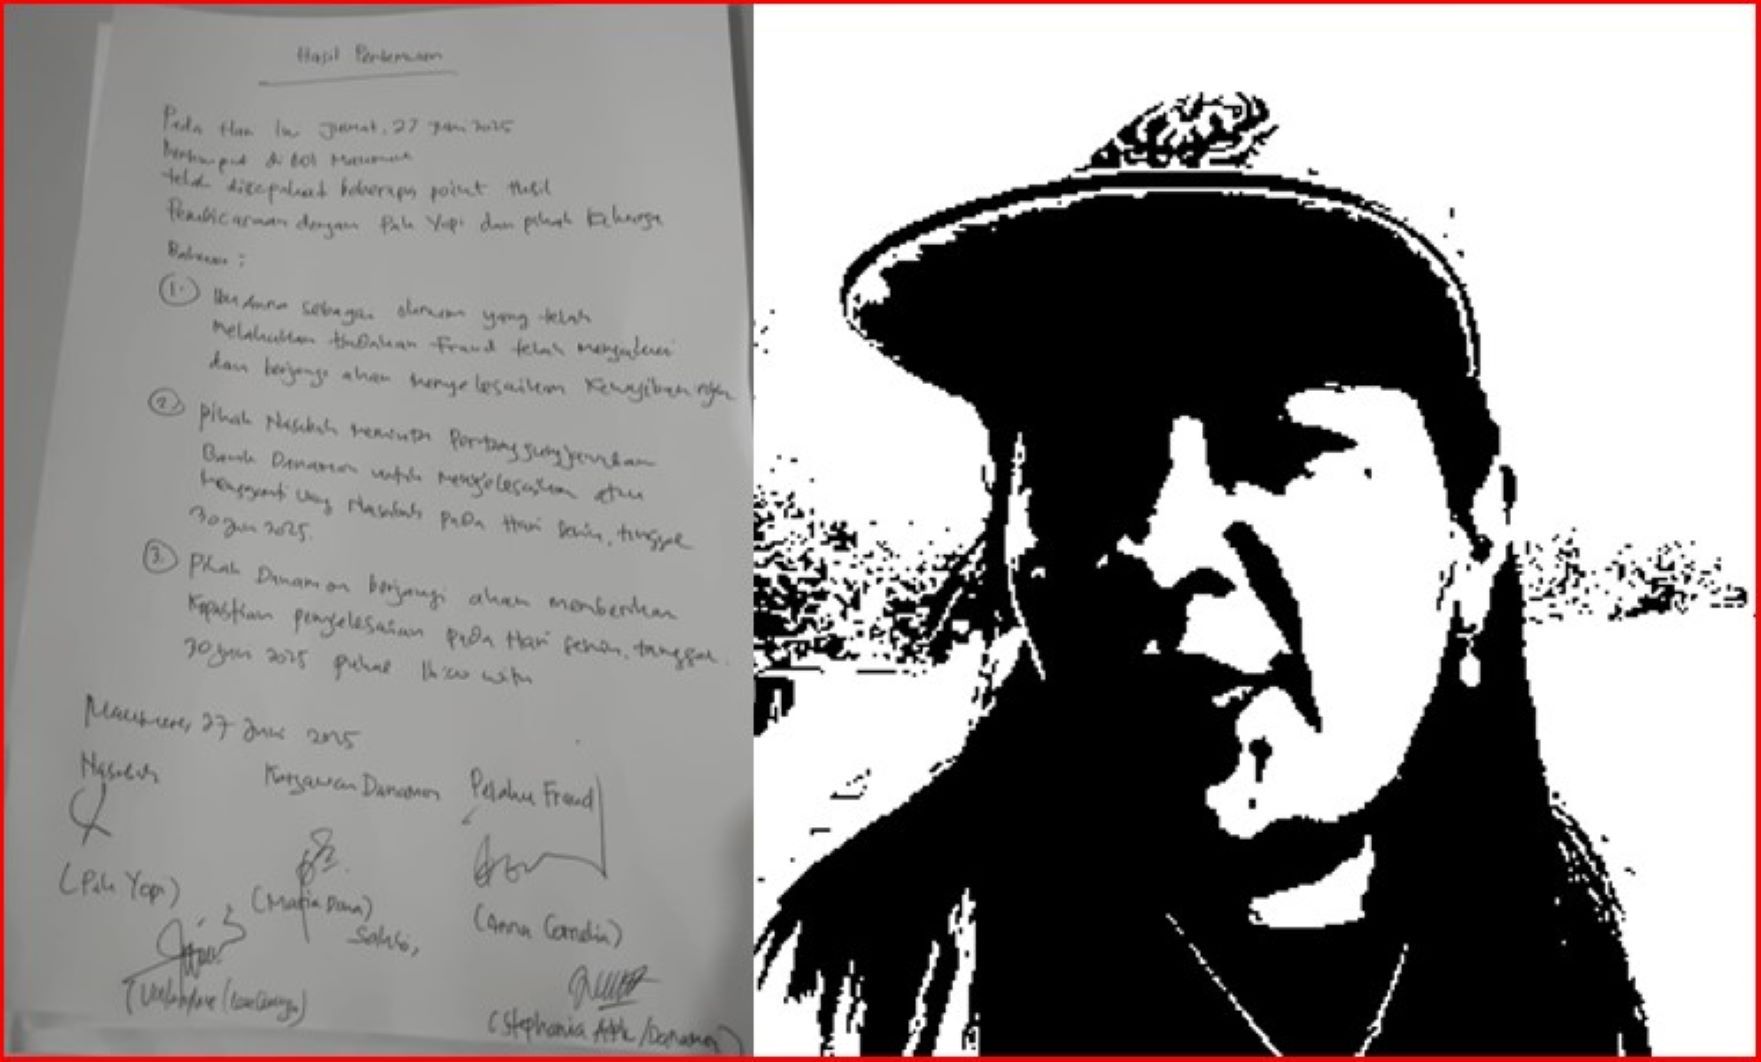 Hasil Pertemuan
Pada Hari Ini Jumat, 27 Juni 2025
Bertempat di BDI Maumere
telah disepakati beberapa point Hasil
Pembicaraan dengan Pak Yopi dan pihak keluarga
Bahwa :
1. Ibu Anna sebagai yang telah
melakukan tindakan Fraud telah mengakui
dan berjanji akan menyelesaikan kewajibannya
2. pihak Nasabah meminta Pertanggungjawaban
Bank Danamon untuk menyelesaikan atau
mengganti uang Nasabah pada Hari Senin, tanggal
30 Jun 2025.
3. pihak Danamon berjanji akan memberikan
Kepastian penyelesaian pada Hari Senin, tanggal
30 Jun 2025 pukul
Maumere, 27 Juni 2025
Nasabah Karyawan Danamon Pelaku Fraud
(Pak Yopi) (Maria Dona) (Anna Corndia)
Saksi,
(Stephania /Danamon)